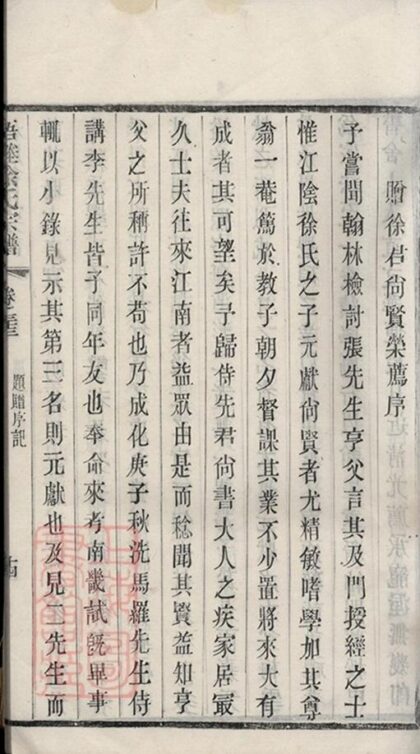 贈徐君尙賢榮薦序
予嘗聞翰林檢討張先生亨父言其及門授經之士
惟江陰徐氏之子元獻尙賢者尤精敏嗜學加其尊
翁一菴篤於教子朝夕督課其業不少置將來大有
成者其可望矣予歸侍先君尙書大人之疾家居最
久士夫往來江南者益眾由是而稔聞其賢益知亨
父之所稱許不苟也乃成化庚子秋洗馬羅先生侍
講李先生皆予同年友也奉命來考南畿試旣畢事
輒以小錄見示其第三名則元獻也及見二先生而
梧塍徐氏宗譜
卷
題贈序記